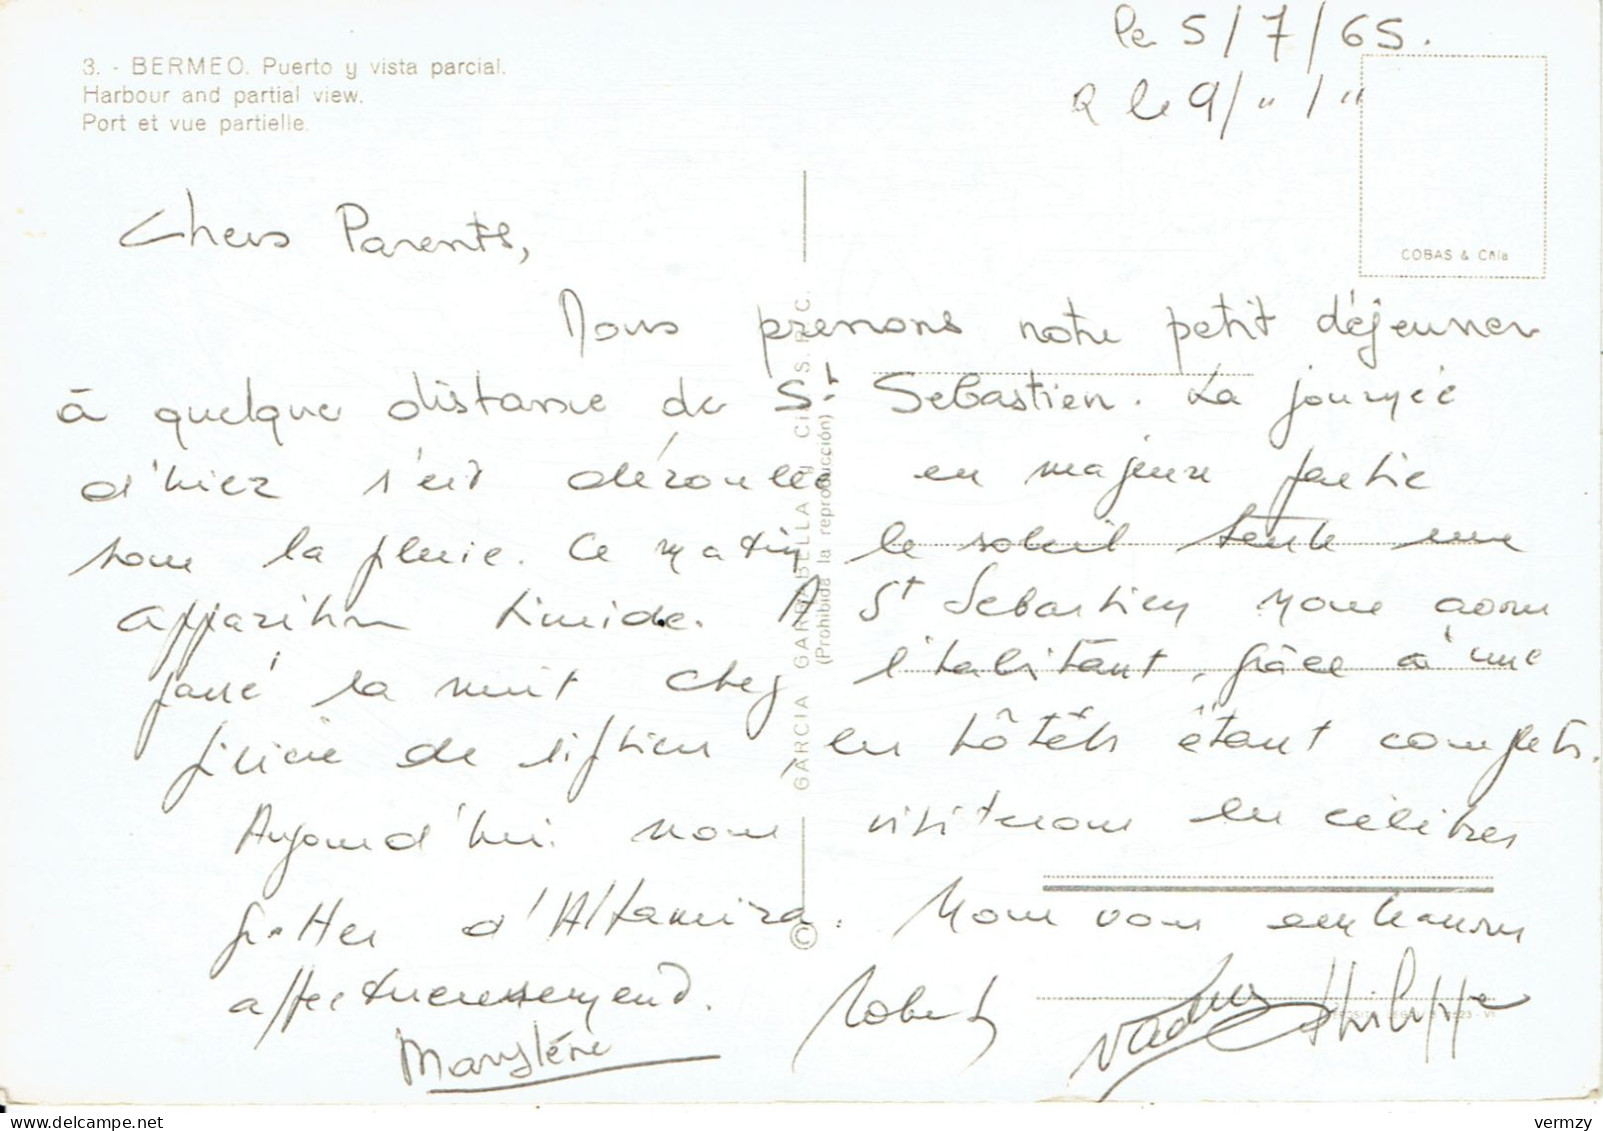 le 5/7/65.
R le 9/"/"
3. - BERMEO. Puerto y vista parcial.
Harbour and partial view.
Port et vue partielle.
COBAS & Cñía
Chers Parents,
Nous prenons notre petit déjeuner
à quelque distance de St. Sebastien. La journée
d'hier s'est déroulée en majeure partie
sous la pluie. Ce matin le soleil tente une
apparition timide. A St Sebastien nous avons
passé la nuit chez l'habitant, grâce à une
de liftier, les hôtels étant complets.
Aujourd'hui nous visiterons les célèbres
grottes d'Altamira. Nous vous embrassons
affectueusement. Robert Philippe
Marylène
GARCIA GARRABELLA y Cia. S. R. C.
(Prohibida la reproducción)
©
vermzy
www.delcampe.net